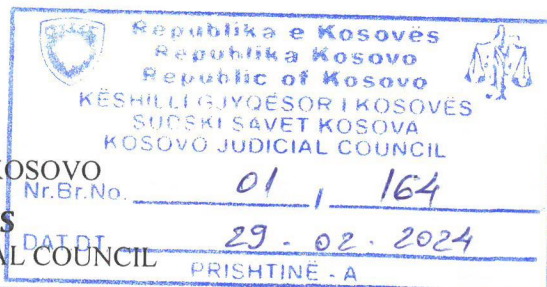 Republika e Kosovës
Republika Kosovo
Republic of Kosovo
KËSHILLI GJYQËSOR I KOSOVËS
SUDSKI SAVET KOSOVA
KOSOVO JUDICIAL COUNCIL
KOSOVO
Nr.Br.No. 01 / 164
S
DAT.DT. 29-02-2024
AL COUNCIL
PRISHTINË - A